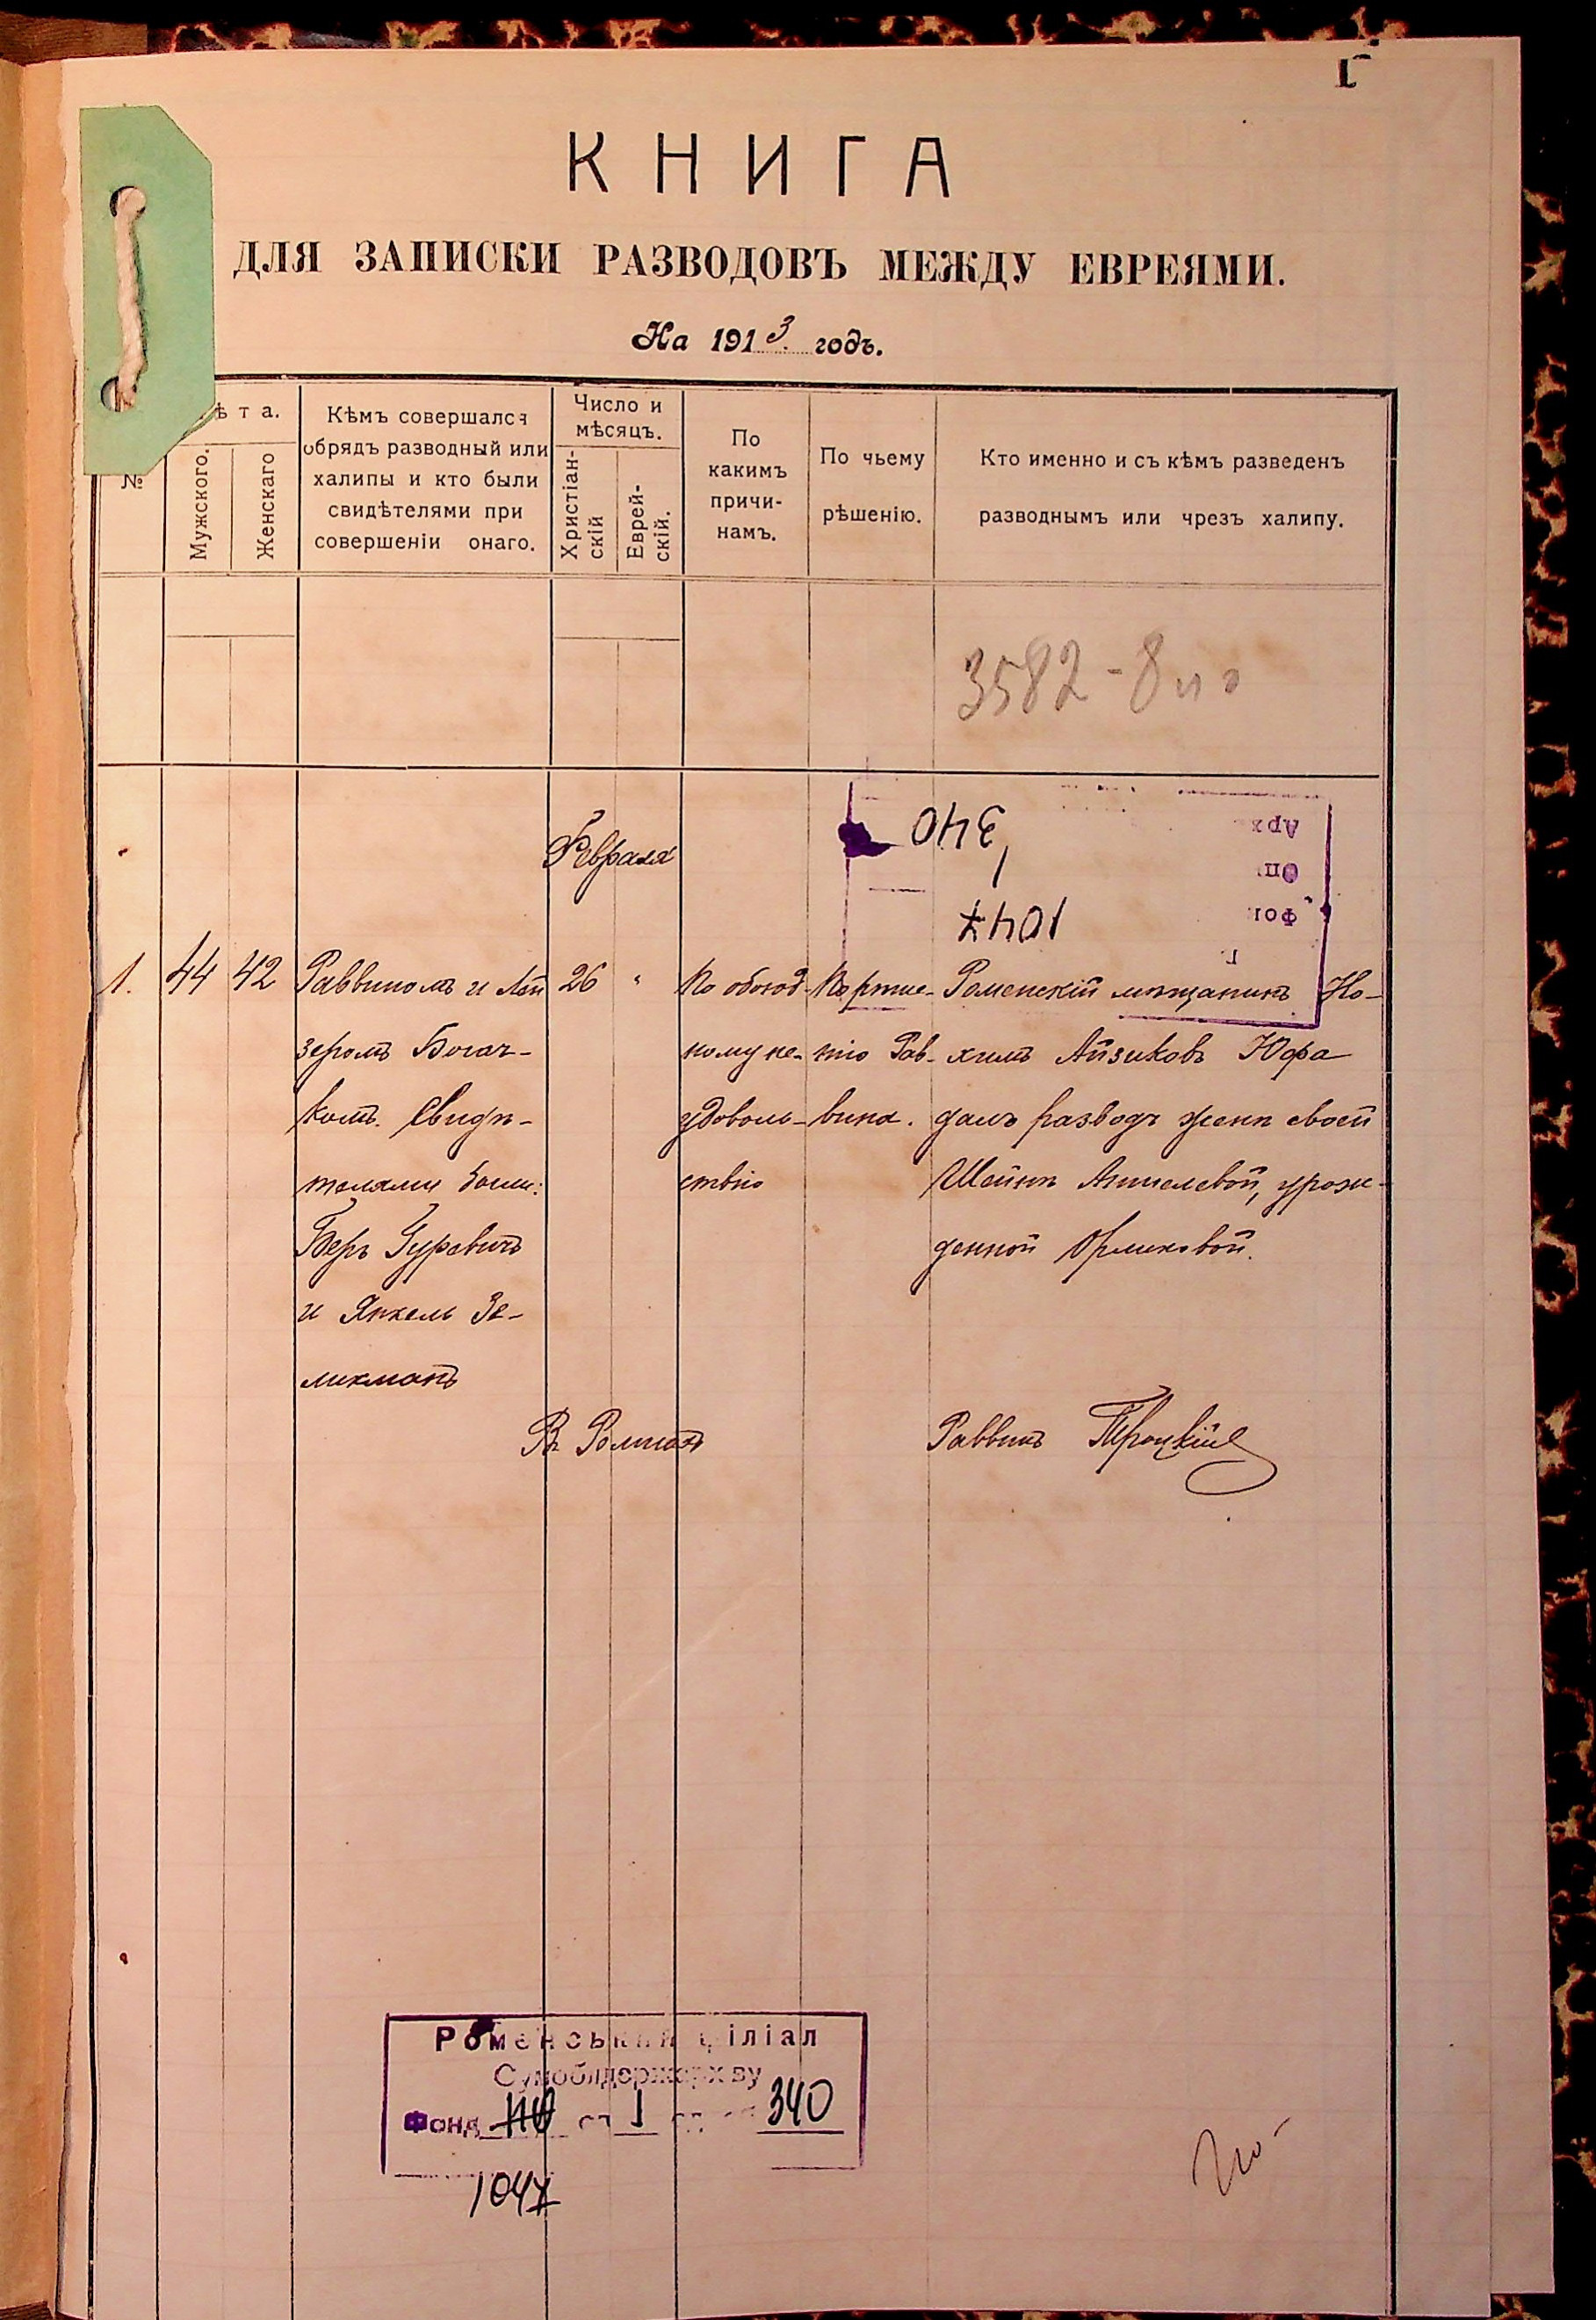 1
КНИГА
ДЛЯ ЗАПИСКИ РАЗВОДОВЪ МЕЖДУ ЕВРЕЯМИ.
На 1913 годъ.
№
ѣта.
Мужского.
Женскаго
Кѣмъ совершался
обрядъ разводный или
халипы и кто были
свидѣтелями при
совершеніи онаго.
Число и
мѣсяцъ.
Христіан-
скій
Еврей-
скій.
По
какимъ
причи-
намъ.
По чьему
рѣшенію.
Кто именно и съ кѣмъ разведенъ
разводнымъ или чрезъ халипу.
3582-8
340
Арх
Оп
1047
Фон
Февраля
1.
44
42
Раввиномъ и Лей
зеромъ Богач-
комъ. Свидѣ-
телями были:
Беръ Гуревичъ
и Янкель Зе-
ликманъ
26
"
По обоюд-
ному не-
удоволь-
ствію
По рѣше-
нію Рав-
вина.
Роменскій мѣщанинъ Но-
химъ Айзиковъ Юфа
далъ разводъ женѣ своей
Шейнѣ Аншелевой, урож-
денной Орликовой.
Раввинъ Троцкій
Роменський філіал
Сумоблдержархіву
Фонд 110 оп 1 340
1047